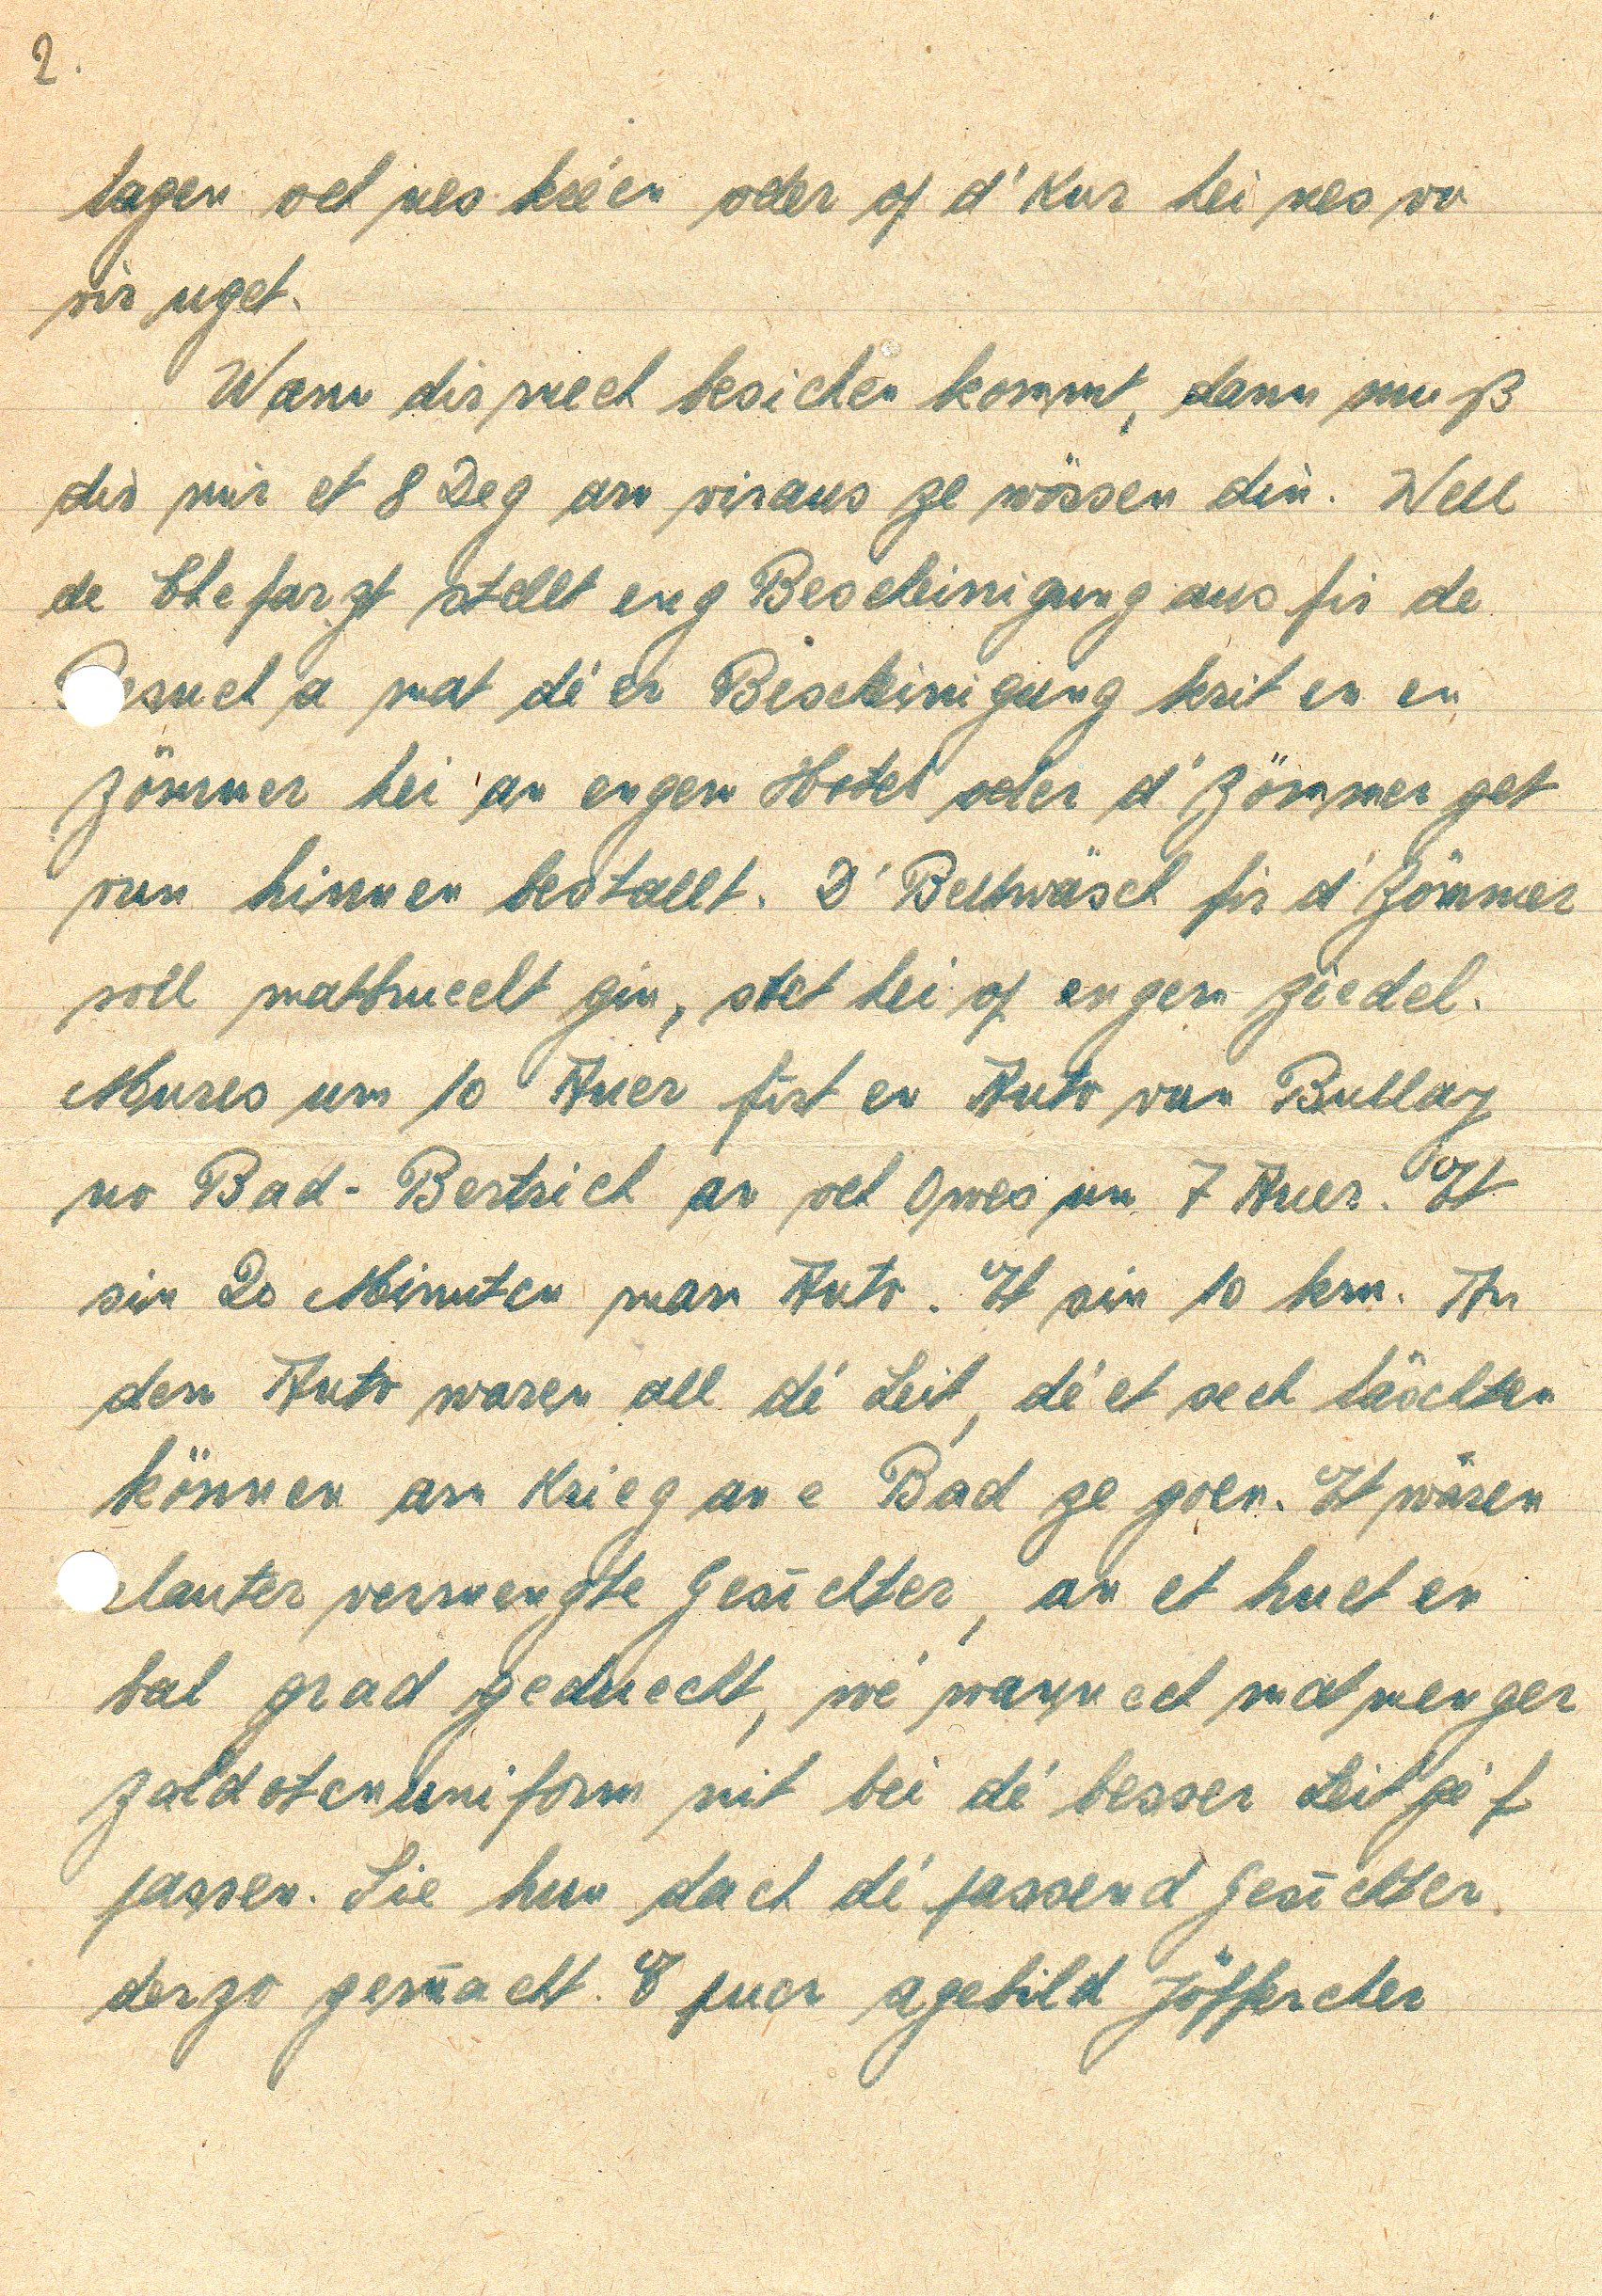 2.
lagen och nés kréien oder of d'Kur hei nés vu
vir uget.
Wann dir mech besichen kommt, dann muß
dir mir et 8 Deg am viraus ze wössen din. Well
de Chefarzt stellt eng Bescheinigung aus fir de
Besuch a mat dé'er Bescheinigung krit en en
Zömmer hei an engem Hotel oder d'Zömmer get
vun hinnen bestallt. D'Bettwäsch fir d'Zömmer
soll mathuecht gin, stet hei of engem Ziedel.
Mures um 10 Auer fírt en Auto vun Bullay
no Bad-Bertrich an och Owes um 7 Auer. Et
sin 20 Minuten mam Auto. Et sin 10 km. An
dem Auto waren all dé Leit, dé et sech läschten
können am Krieg an e Bad ze goen. Et wären
lauter vermengte Gesichter, an et huet en
bal grad geduecht, wé wann ech mat menger
Zaldotenuniform nit bei dé besser Leit gé'f
passen. Sie hun dach dé passend Gesichter
derzo gemacht. E puer agebild Jöfferchen